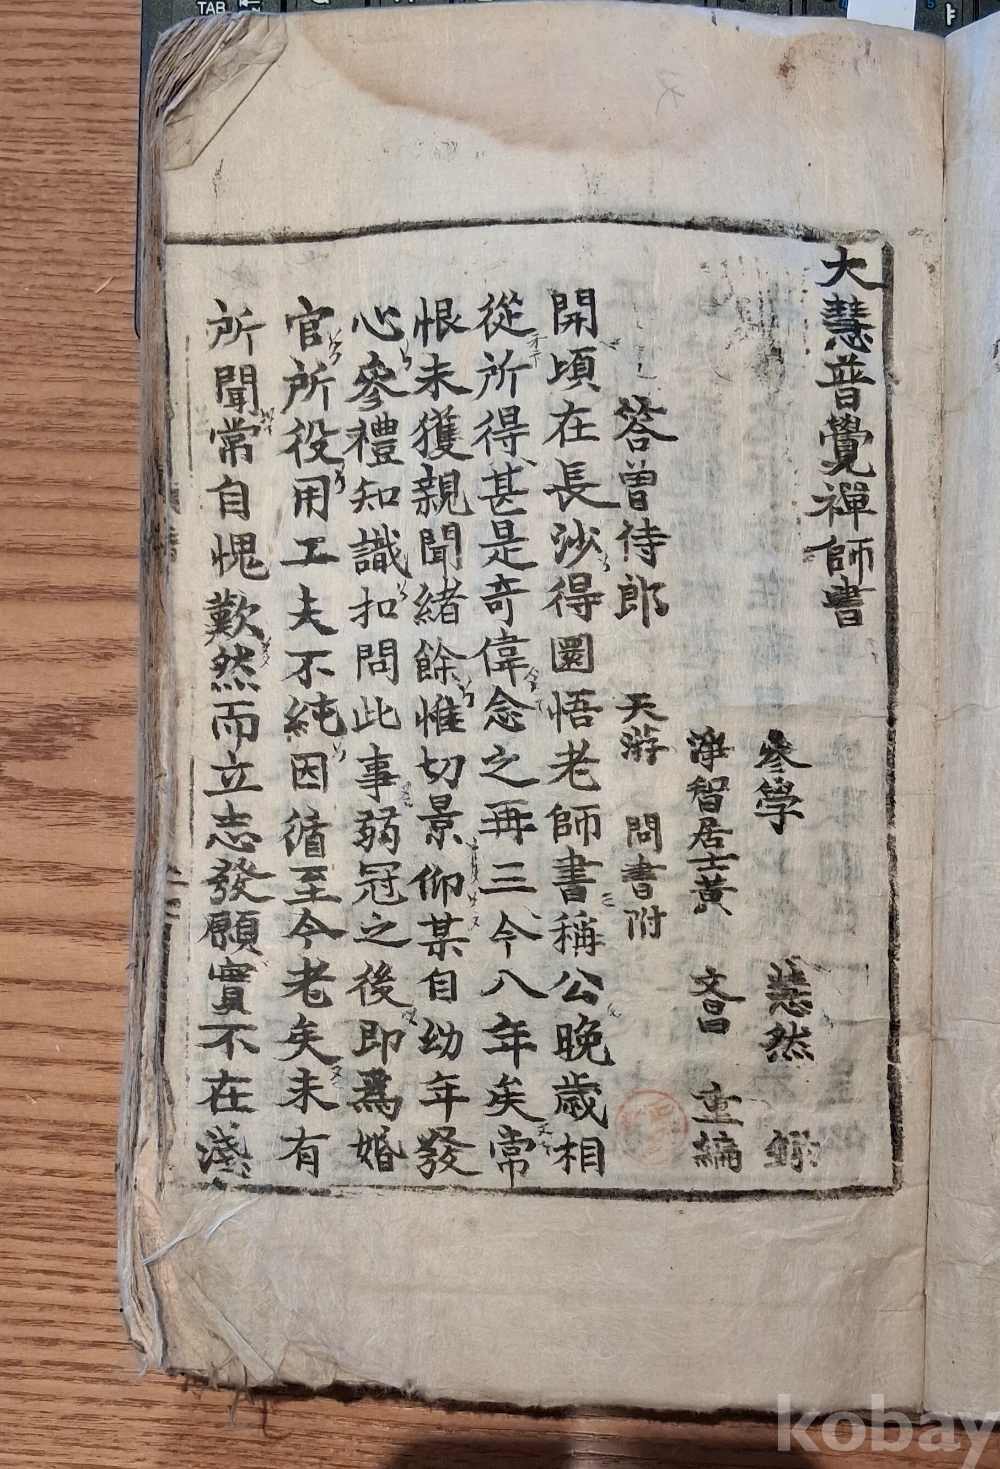 大慧普覺禪師書
參學 慧然 錄
淨智居士黃 文昌 重編
答曾侍郎 天游 問書附
開頃在長沙得圜悟老師書稱公晚歲相
從所得甚是奇偉念之再三今八年矣常
恨未獲親聞緖餘惟切景仰某自幼年發
心參禮知識扣問此事弱冠之後卽爲婚
官所役用工夫不純因循至今老矣未有
所聞常自愧歎然而立志發願實不在淺
TAB
kobay